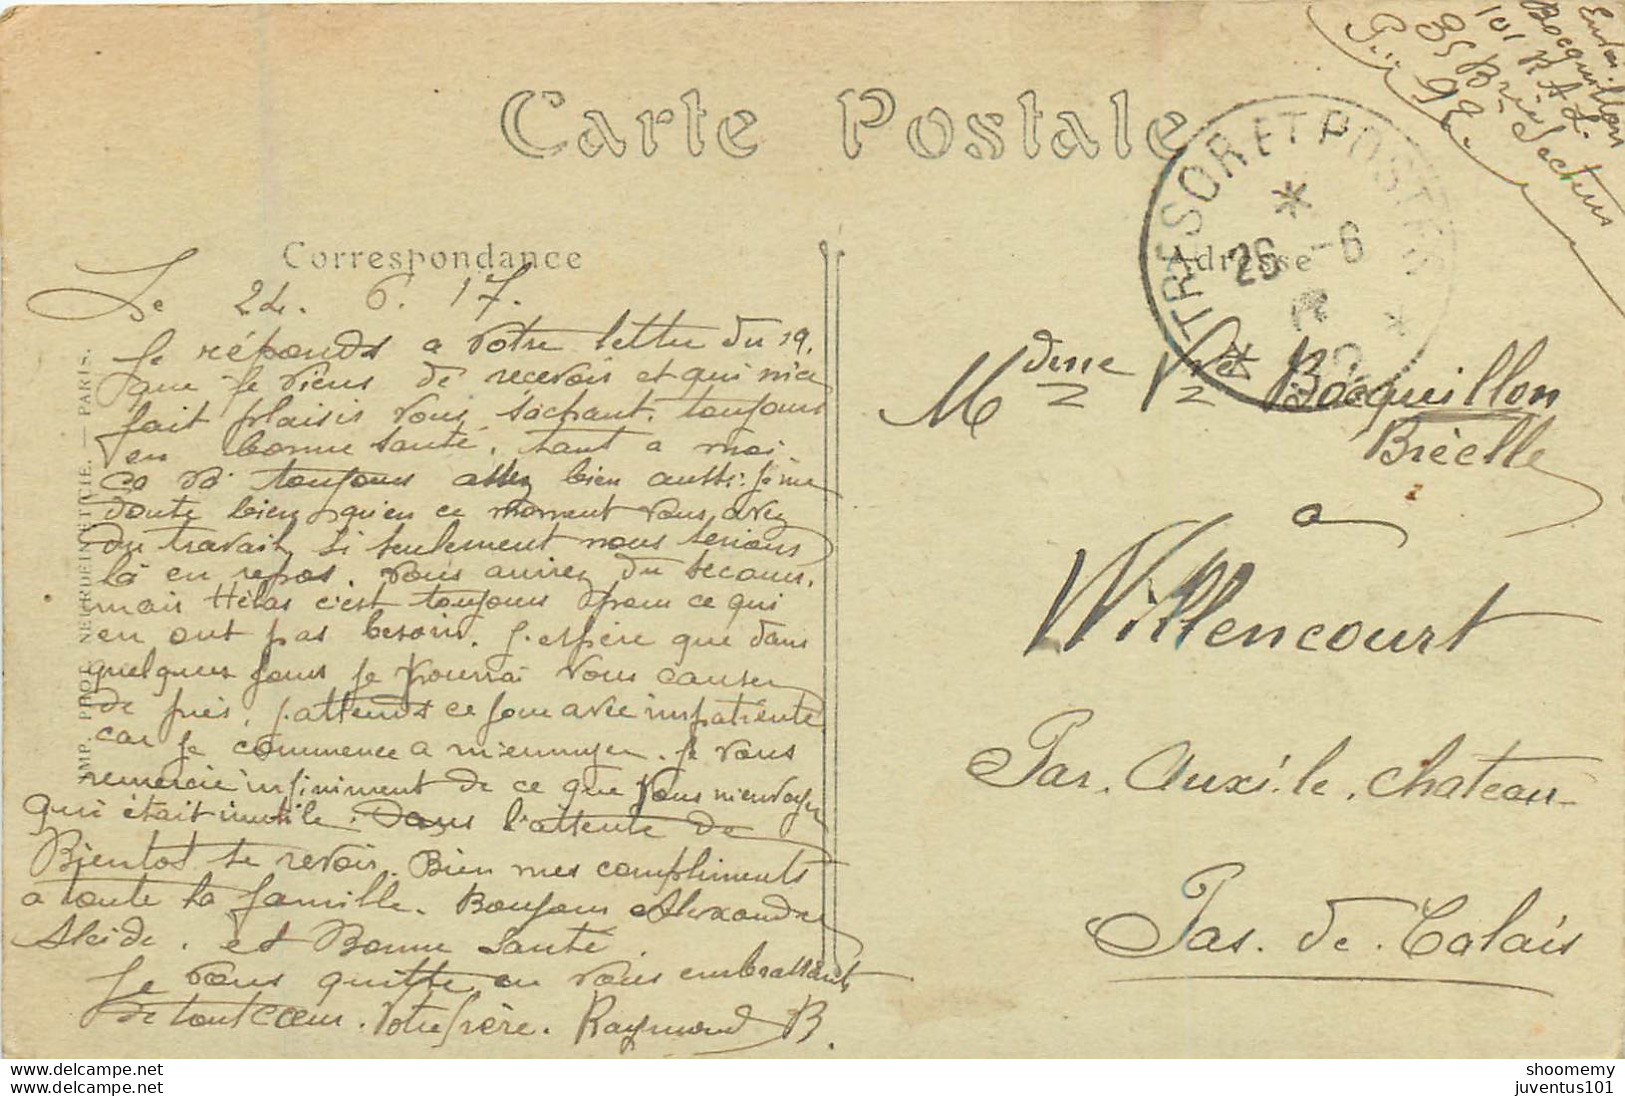 Carte Postale
Correspondance
Adresse
Envoi.
Bocquillon
101 R A L.
35 Brie Secteur
98.
TRESOR ET POSTES
26 -6
Le 24. 6. 17.
Je réponds a votre lettre du 19.
que je viens de recevoir et qui m'a
fait plaisir vous sachant toujours
en bonne santé. tant a moi
ça va toujours assez bien aussi. Je me
doute bien qu'en ce moment vous avez
du travail, si seulement nous serions
là en repos. vous auriez du secours.
mais Hélas c'est toujours pour ce qui
en ont pas besoin. J'espère que dans
quelques jours je pourrai vous causer
de près, j'attends ce jour avec impatiente
car je commence a m'ennuyer. je vous
remercie infiniment de ce que vous m'envoyer
qui était inutile. Dans l'attente de
Bientot se revoir. Bien mes compliments
a toute la famille. Bonjour Alexandre
Alcide. et Bonne Santé.
Je vous quitte en vous embrassant
de tout cœur. Votre frère. Raymond B.
Mdme Vve Bocquillon
Bréelle
a
Willencourt
Par. Auxi. le. chateau
Pas. de. Calais
IMP. PHOT. NEURDEIN ET CIE. — PARIS.
shoomemy
juventus101